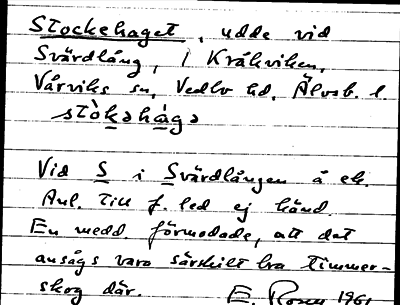 Stockehaget, udde vid
Svärdlång, i Kråkviken,
Vårviks sn, Vedbo hd, Älvsb. l.
stòkahàgə
Vid S i Svärdlången å ek.
Anl. till f. led ej känd.
En medd. förmodade, att det
ansågs vara särskilt bra timmer-
skog där. E. Rosen 1961